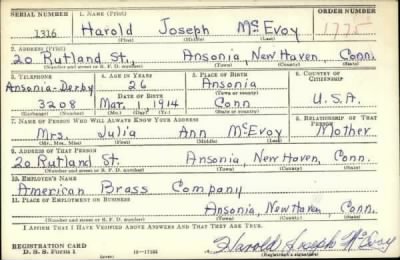 SERIAL NUMBER 1. NAME (Print) ORDER NUMBER
1316 Harold Joseph McEvoy 1775
(First) (Middle) (Last)
2. ADDRESS (Print)
20 Rutland St. Ansonia, New Haven, Conn.
(Number and street or R. F. D. number) (Town) (County) (State)
3. TELEPHONE 4. AGE IN YEARS 5. PLACE OF BIRTH 6. COUNTRY OF CITIZENSHIP
Ansonia-Derby 26 Ansonia
DATE OF BIRTH (Town or county)
3208 Mar. 1, 1914 Conn U.S.A.
(Exchange) (Number) (Mo.) (Day) (Yr.) (State or country)
7. NAME OF PERSON WHO WILL ALWAYS KNOW YOUR ADDRESS 8. RELATIONSHIP OF THAT PERSON
Mrs. Julia Ann McEvoy Mother
(Mr., Mrs., Miss) (First) (Middle) (Last)
9. ADDRESS OF THAT PERSON
20 Rutland St. Ansonia, New Haven, Conn.
(Number and street or R. F. D. number) (Town) (County) (State)
10. EMPLOYER'S NAME
American Brass Company
11. PLACE OF EMPLOYMENT OR BUSINESS
Ansonia, New Haven, Conn.
(Number and street or R. F. D. number) (Town) (County) (State)
I AFFIRM THAT I HAVE VERIFIED ABOVE ANSWERS AND THAT THEY ARE TRUE.
REGISTRATION CARD
D. S. S. Form 1 Harold Joseph McEvoy
(Registrant's signature)